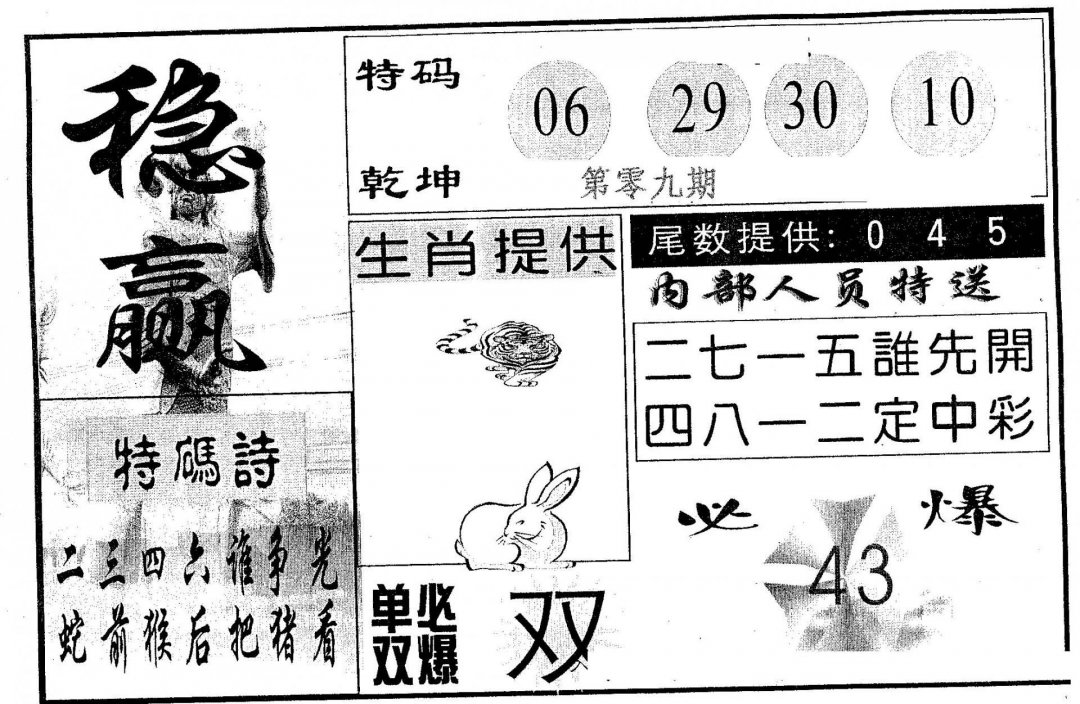 稳
赢
特码
06 29 30 10
乾坤
第零九期
生肖提供
尾数提供: 0 4 5
内部人员特送
二七一五誰先開
四八一二定中彩
特碼詩
二三四六谁争光
蛇前猴后把猪看
必爆
43
单双
必爆
双